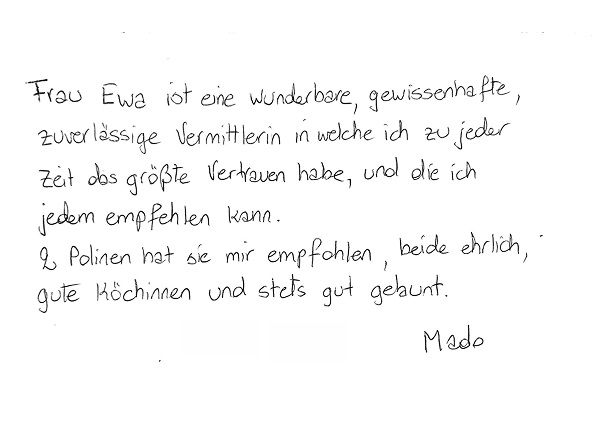 Frau Ewa ist eine wunderbare, gewissenhafte,
zuverlässige Vermittlerin in welche ich zu jeder
Zeit das größte Vertrauen habe, und die ich
jedem empfehlen kann.
2 Polinen hat sie mir empfohlen, beide ehrlich,
gute Köchinnen und stets gut gelaunt.
Mado